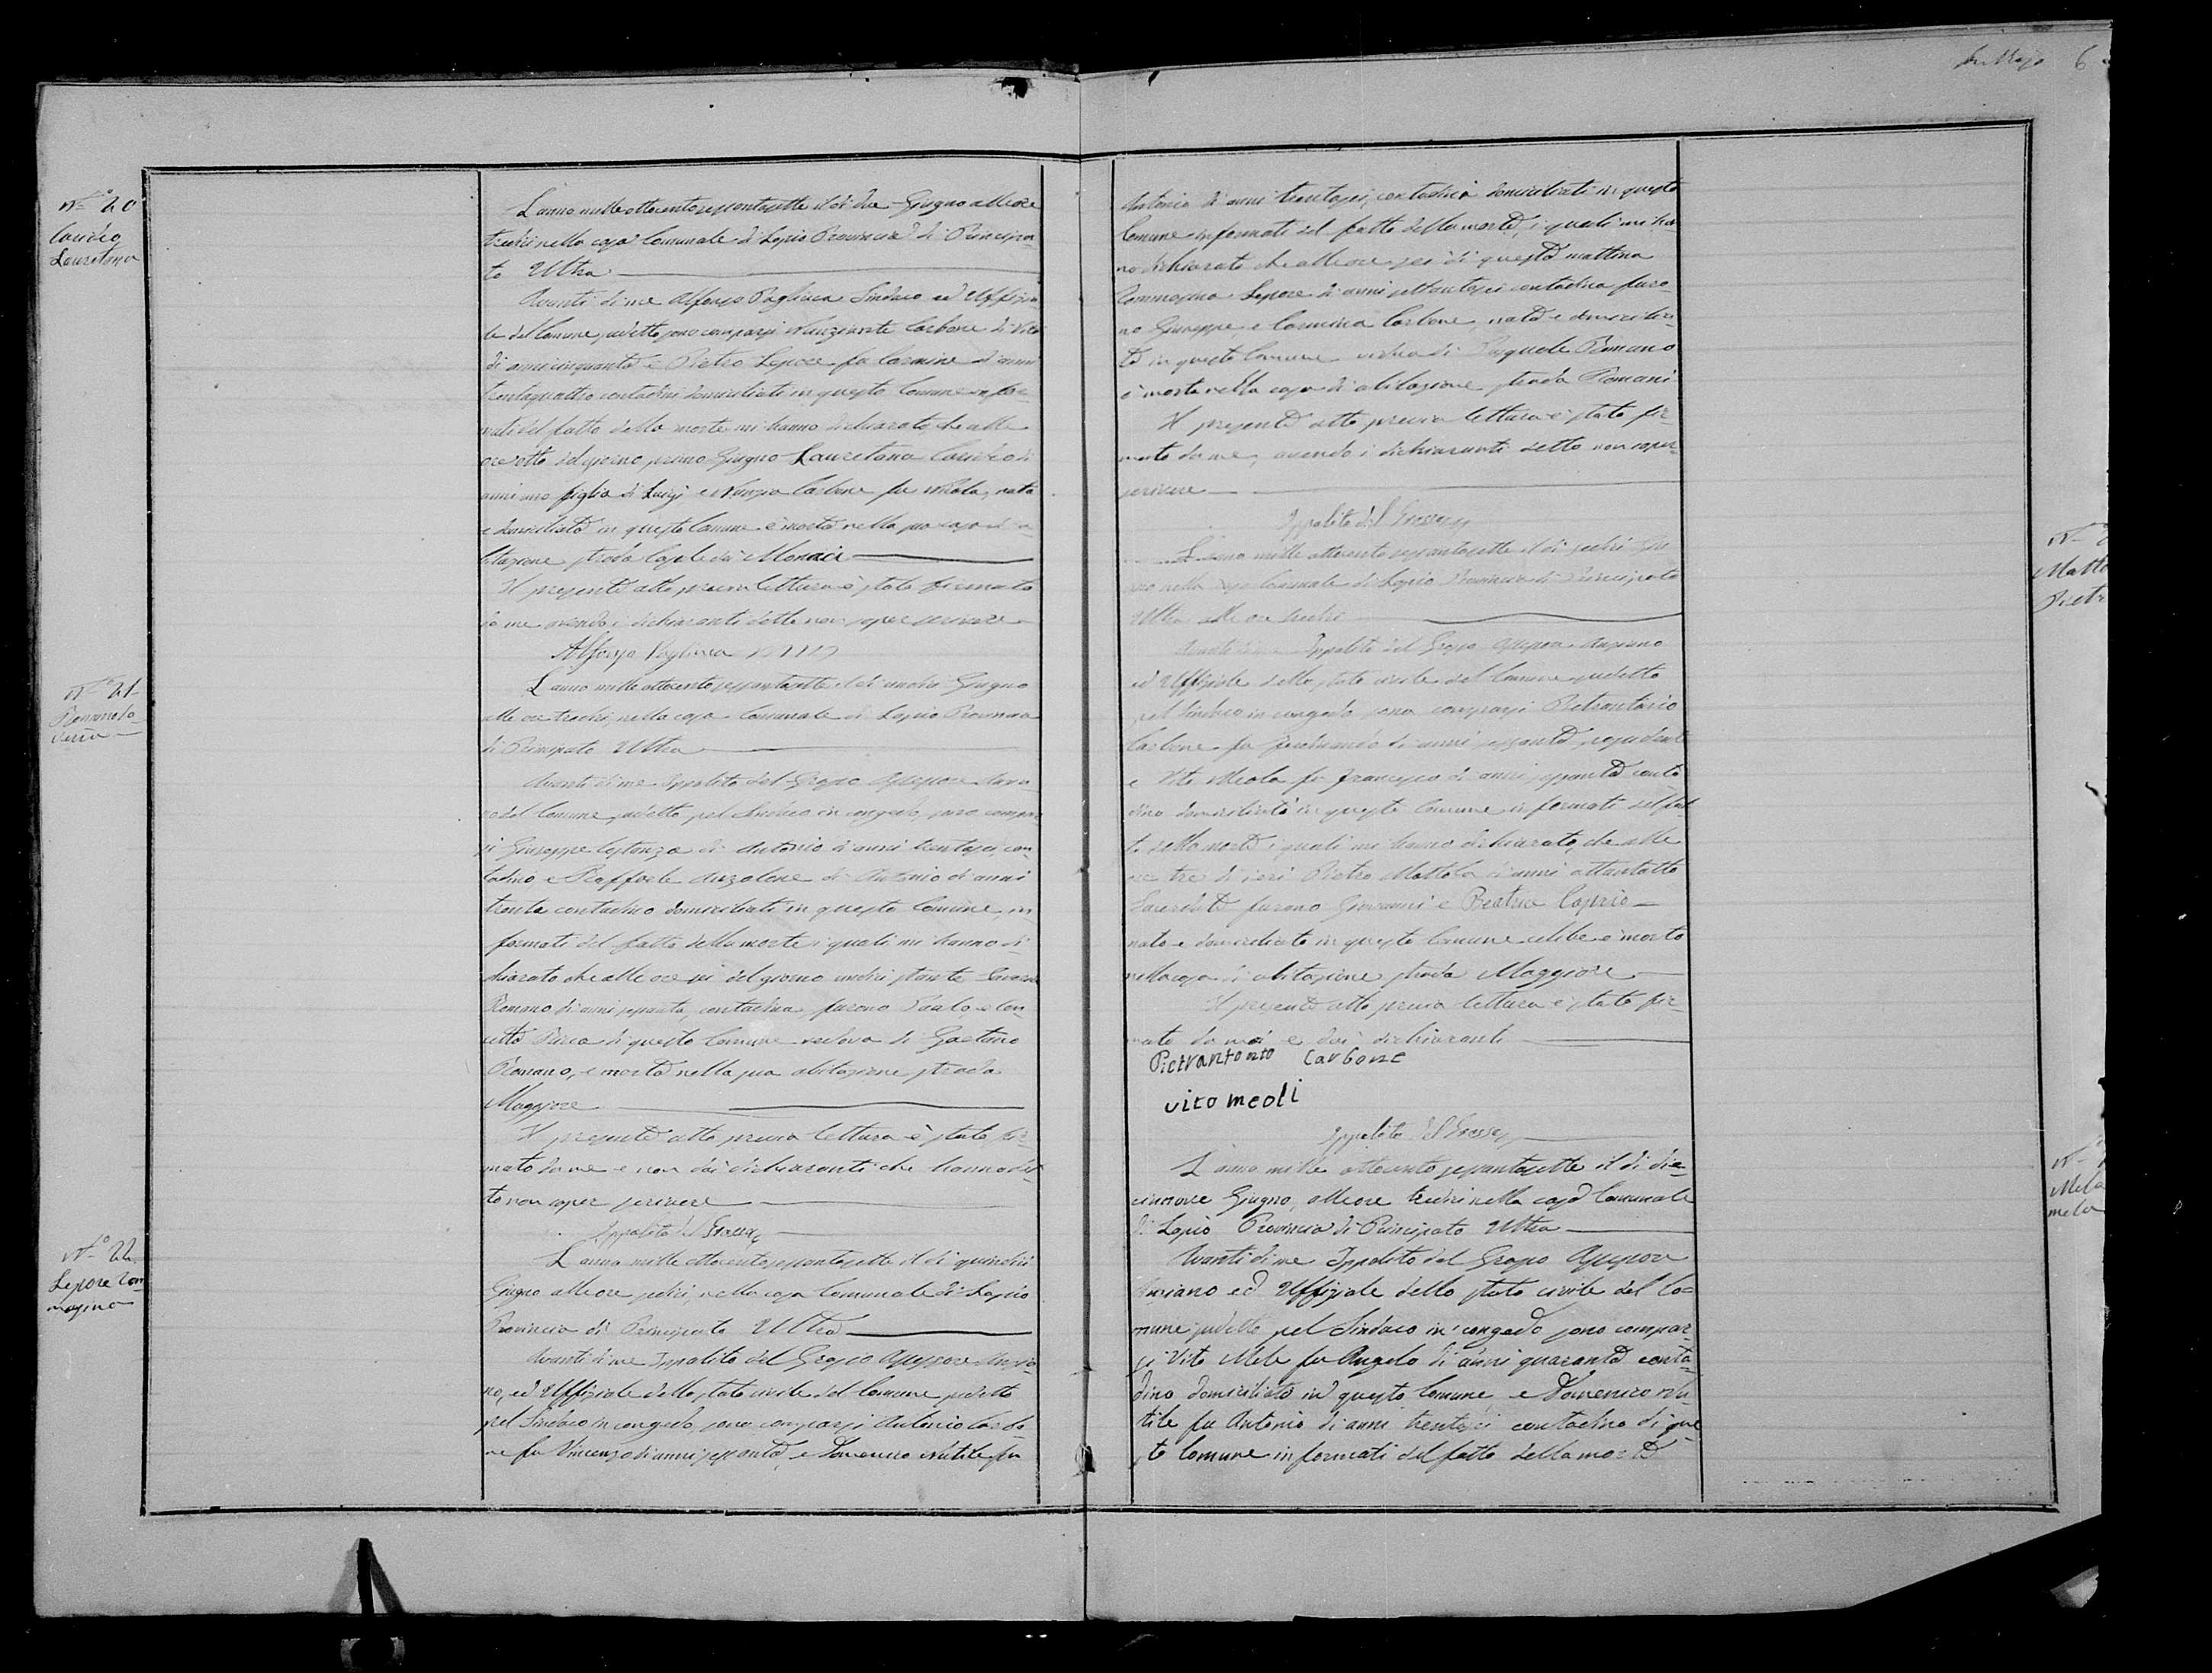 N.° 20
Carideo
Lauretana
L'anno mille ottocento sessantasette il dì due Giugno alle ore
tredici nella casa Comunale di Lapio Provincia di Principa-
to Ultra
Avanti di me Alfonso Pagliuca Sindaco ed Uffizia
le del Comune sudetto sono comparsi Nunziante Carbone di Vito
di anni cinquanta e Pietro Lepore fu Carmine d'anni
trentaquattro contadini domiciliati in questo Comune infor-
mati del fatto della morte mi hanno dichiarato che alle
ore otto del giorno primo Giugno Lauretana Carideo di
anni uno figlia di Luigi e Nunzia Carbone fu nata
e domiciliata in questo Comune è morta nella sua casa di a-
bitazione strada Casale dei Monaci
Il presente atto previa lettura è stato firmato
da me avendo i dichiaranti detto non saper scrivere
Alfonso Pagliuca
N.° 21
Romano
L'anno mille ottocento sessantasette il dì undici Giugno
alle ore tredici, nella casa Comunale di Lapio Provincia
di Principato Ultra
Avanti di me Ippolito del Grosso Assessore Anzia
no del Comune sudetto pel Sindaco in congedo, sono compar
si Giuseppe Costanza di Antonio di anni trentasei, con-
tadino e Raffaele Anzalone di Antonio di anni
trenta contadino domiciliati in questo Comune, in-
formati del fatto della morte i quali mi hanno di
chiarato che alle ore sei del giorno undici stante
Romano di anni sessanta, contadina, furono Paolo, e Con-
cetta di questo Comune vedova di Gaetano
Romano, è morta nella sua abitazione strada
Maggiore
Il presente atto previa lettura è stato fir-
mato da me e non dai dichiaranti che hanno det-
to non saper scrivere
Ippolito del Grosso
N.° 22
Lepore Com
magina
L'anno mille ottocento sessantasette il dì quindici
Giugno alle ore sedici, nella casa Comunale di Lapio
Provincia di Principato Ultra
Avanti di me Ippolito del Grosso Assessore Anzia
no, ed Uffiziale dello stato civile del Comune sudetto
pel Sindaco in congedo, sono comparsi Antonio Carbo-
ne fu Vincenzo di anni sessanta, e Domenico Nutile fu
6
Antonio di anni trentasei, contadini domiciliati in questo
Comune informati del fatto della morte, i quali mi han
no dichiarato che alle ore sei di questa mattina
Commagina Lepore di anni settantasei contadina furo-
no Giuseppe e Carmina Carbone, nata e domicilia-
ta in questo Comune vedova di Pasquale Romano
è morta nella casa di abitazione strada Romani
Il presente atto previa lettura è stato fir-
mato da me, avendo i dichiaranti detto non saper
scrivere
Ippolito del Grosso
L'anno mille ottocento sessantasette il dì sedici Giu
gno nella casa Comunale di Lapio Provincia di Principato
Ultra alle ore tredici
Avanti di me Ippolito del Grosso Assessore Anziano
ed Uffiziale dello stato civile del Comune sudetto
pel Sindaco in congedo sono comparsi Pietrantonio
Carbone fu Ferdinando di anni sessanta,
e Vito Meola fu Francesco di anni sessanta conta
dino domiciliati in questo Comune informati del fat-
to della morte i quali mi hanno dichiarato, che alle
ore tre di ieri Pietro Mattola di anni ottantotto
Sacerdote furono Giovanni e Beatrice Caprio
nato e domiciliato in questo Comune celibe è morto
nella casa di abitazione strada Maggiore
Il presente atto previa lettura è stato fir-
mato da me e dai dichiaranti
Pietrantonio Carbone
vito meoli
Ippolito del Grosso
L'anno mille ottocento sessantasette il dì die-
cinnove Giugno, alle ore tredici nella casa Comunale
di Lapio Provincia di Principato Ultra
Avanti di me Ippolito del Grosso Assessore
Anziano ed Uffiziale dello stato civile del Co-
mune sudetto pel Sindaco in congedo sono compar-
si Vito Mele fu Angelo di anni quaranta conta-
dino domiciliato in questo Comune e Domenico Nu-
tile fu Antonio di anni trentasei contadino di que
sto Comune informati del fatto della morte